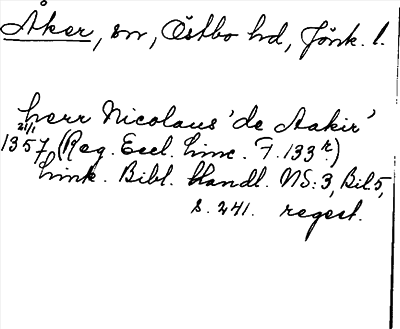 Åker, sn, Östbo hd, Jönk. l.
herr Nicolaus 'de Aakir'
21/1
1357 (Reg. Eccl. Linc. F. 133 r.)
Link. Bibl. Handl. NS:3, Bil. 5,
s. 241. regest.